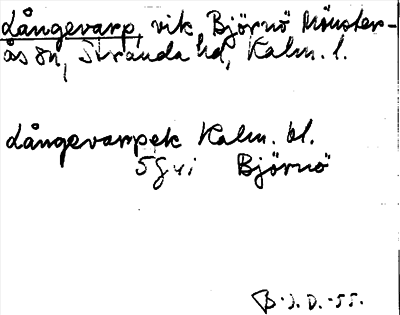 Långevarp, vik Björnö Mönster-
ås sn, Stranda hd, Kalm. l.
Långevarpek Kalm. bl.
5G vi Björnö
B.J.D.-55.